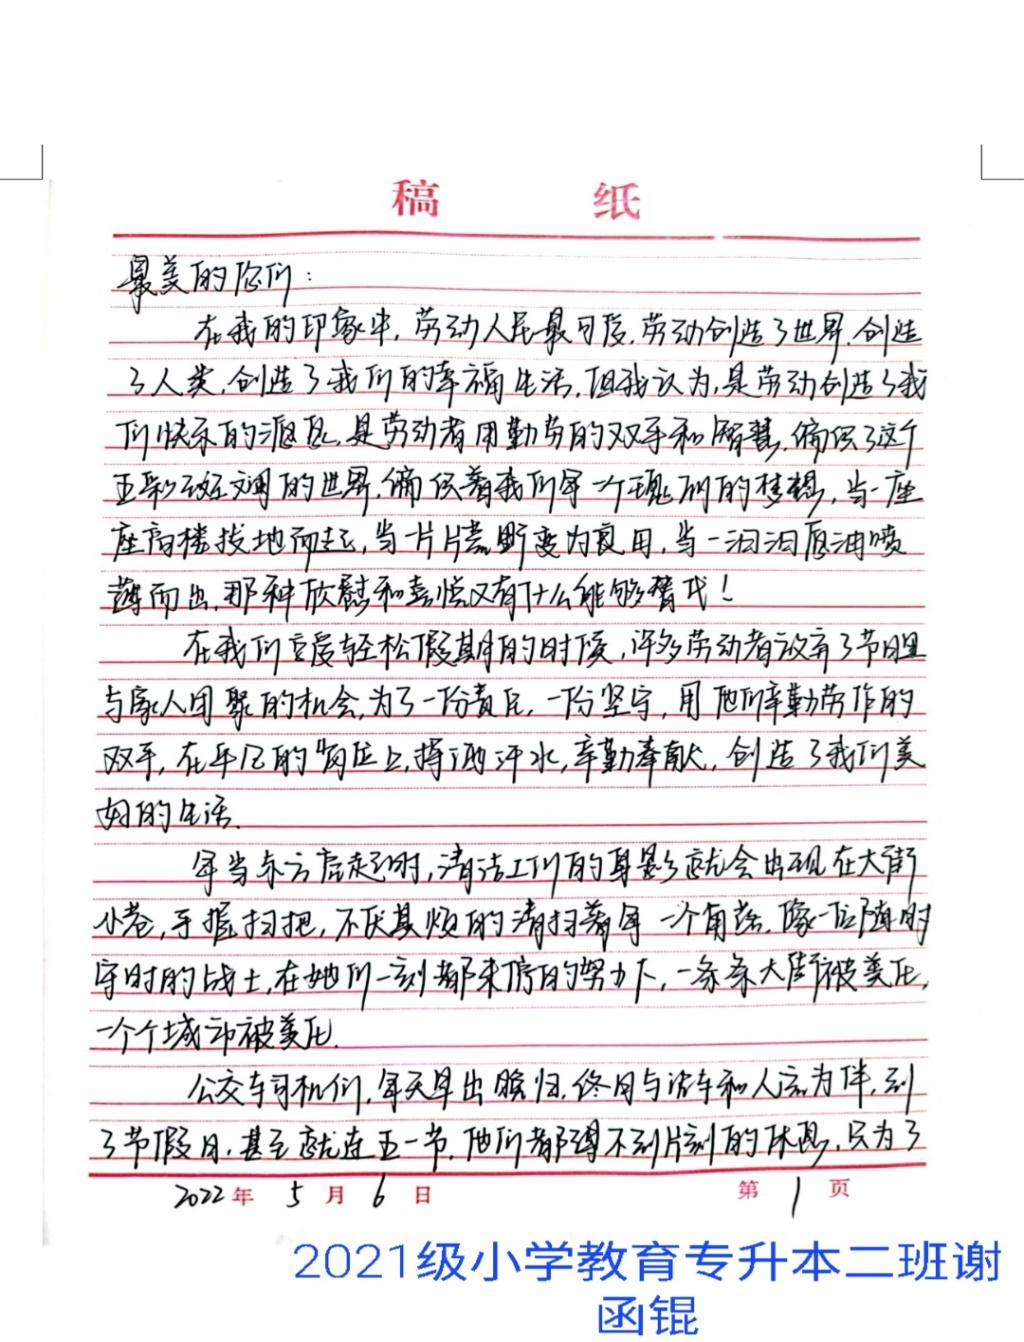 稿 纸
最美的你们：
在我的印象中，劳动人民最可爱，劳动创造了世界，创造
了人类，创造了我们的幸福生活，但我认为，是劳动创造了我
们快乐的源泉，是劳动者用勤劳的双手和智慧，编织了这个
五彩斑斓的世界，编织着我们每一个瑰丽的梦想，当一座
座高楼拔地而起，当一片片荒野变为良田，当一汩汩原油喷
薄而出，那种欣慰和喜悦又有什么能够替代！
在我们享受轻松假期的时候，许多劳动者放弃了节日里
与家人团聚的机会，为了一份责任，一份坚守，用他们辛勤劳作的
双手，在平凡的岗位上，挥洒汗水，辛勤奉献，创造了我们美
好的生活。
每当东方虎起时，清洁工们的身影就会出现在大街
小巷，手握扫把，不厌其烦的清扫着每一个角落，像一位随时
守时的战士，在她们一刻都未停的努力下，一条条大街被美化，
一个个城市被美化。
公交车司机们，每天早出晚归，终日与流车和人流为伴，到
了节假日，甚至就连五一节，他们都得不到片刻的休息，只为了
2022年 5月 6日 第 1 页
2021级小学教育专升本二班谢
函锟